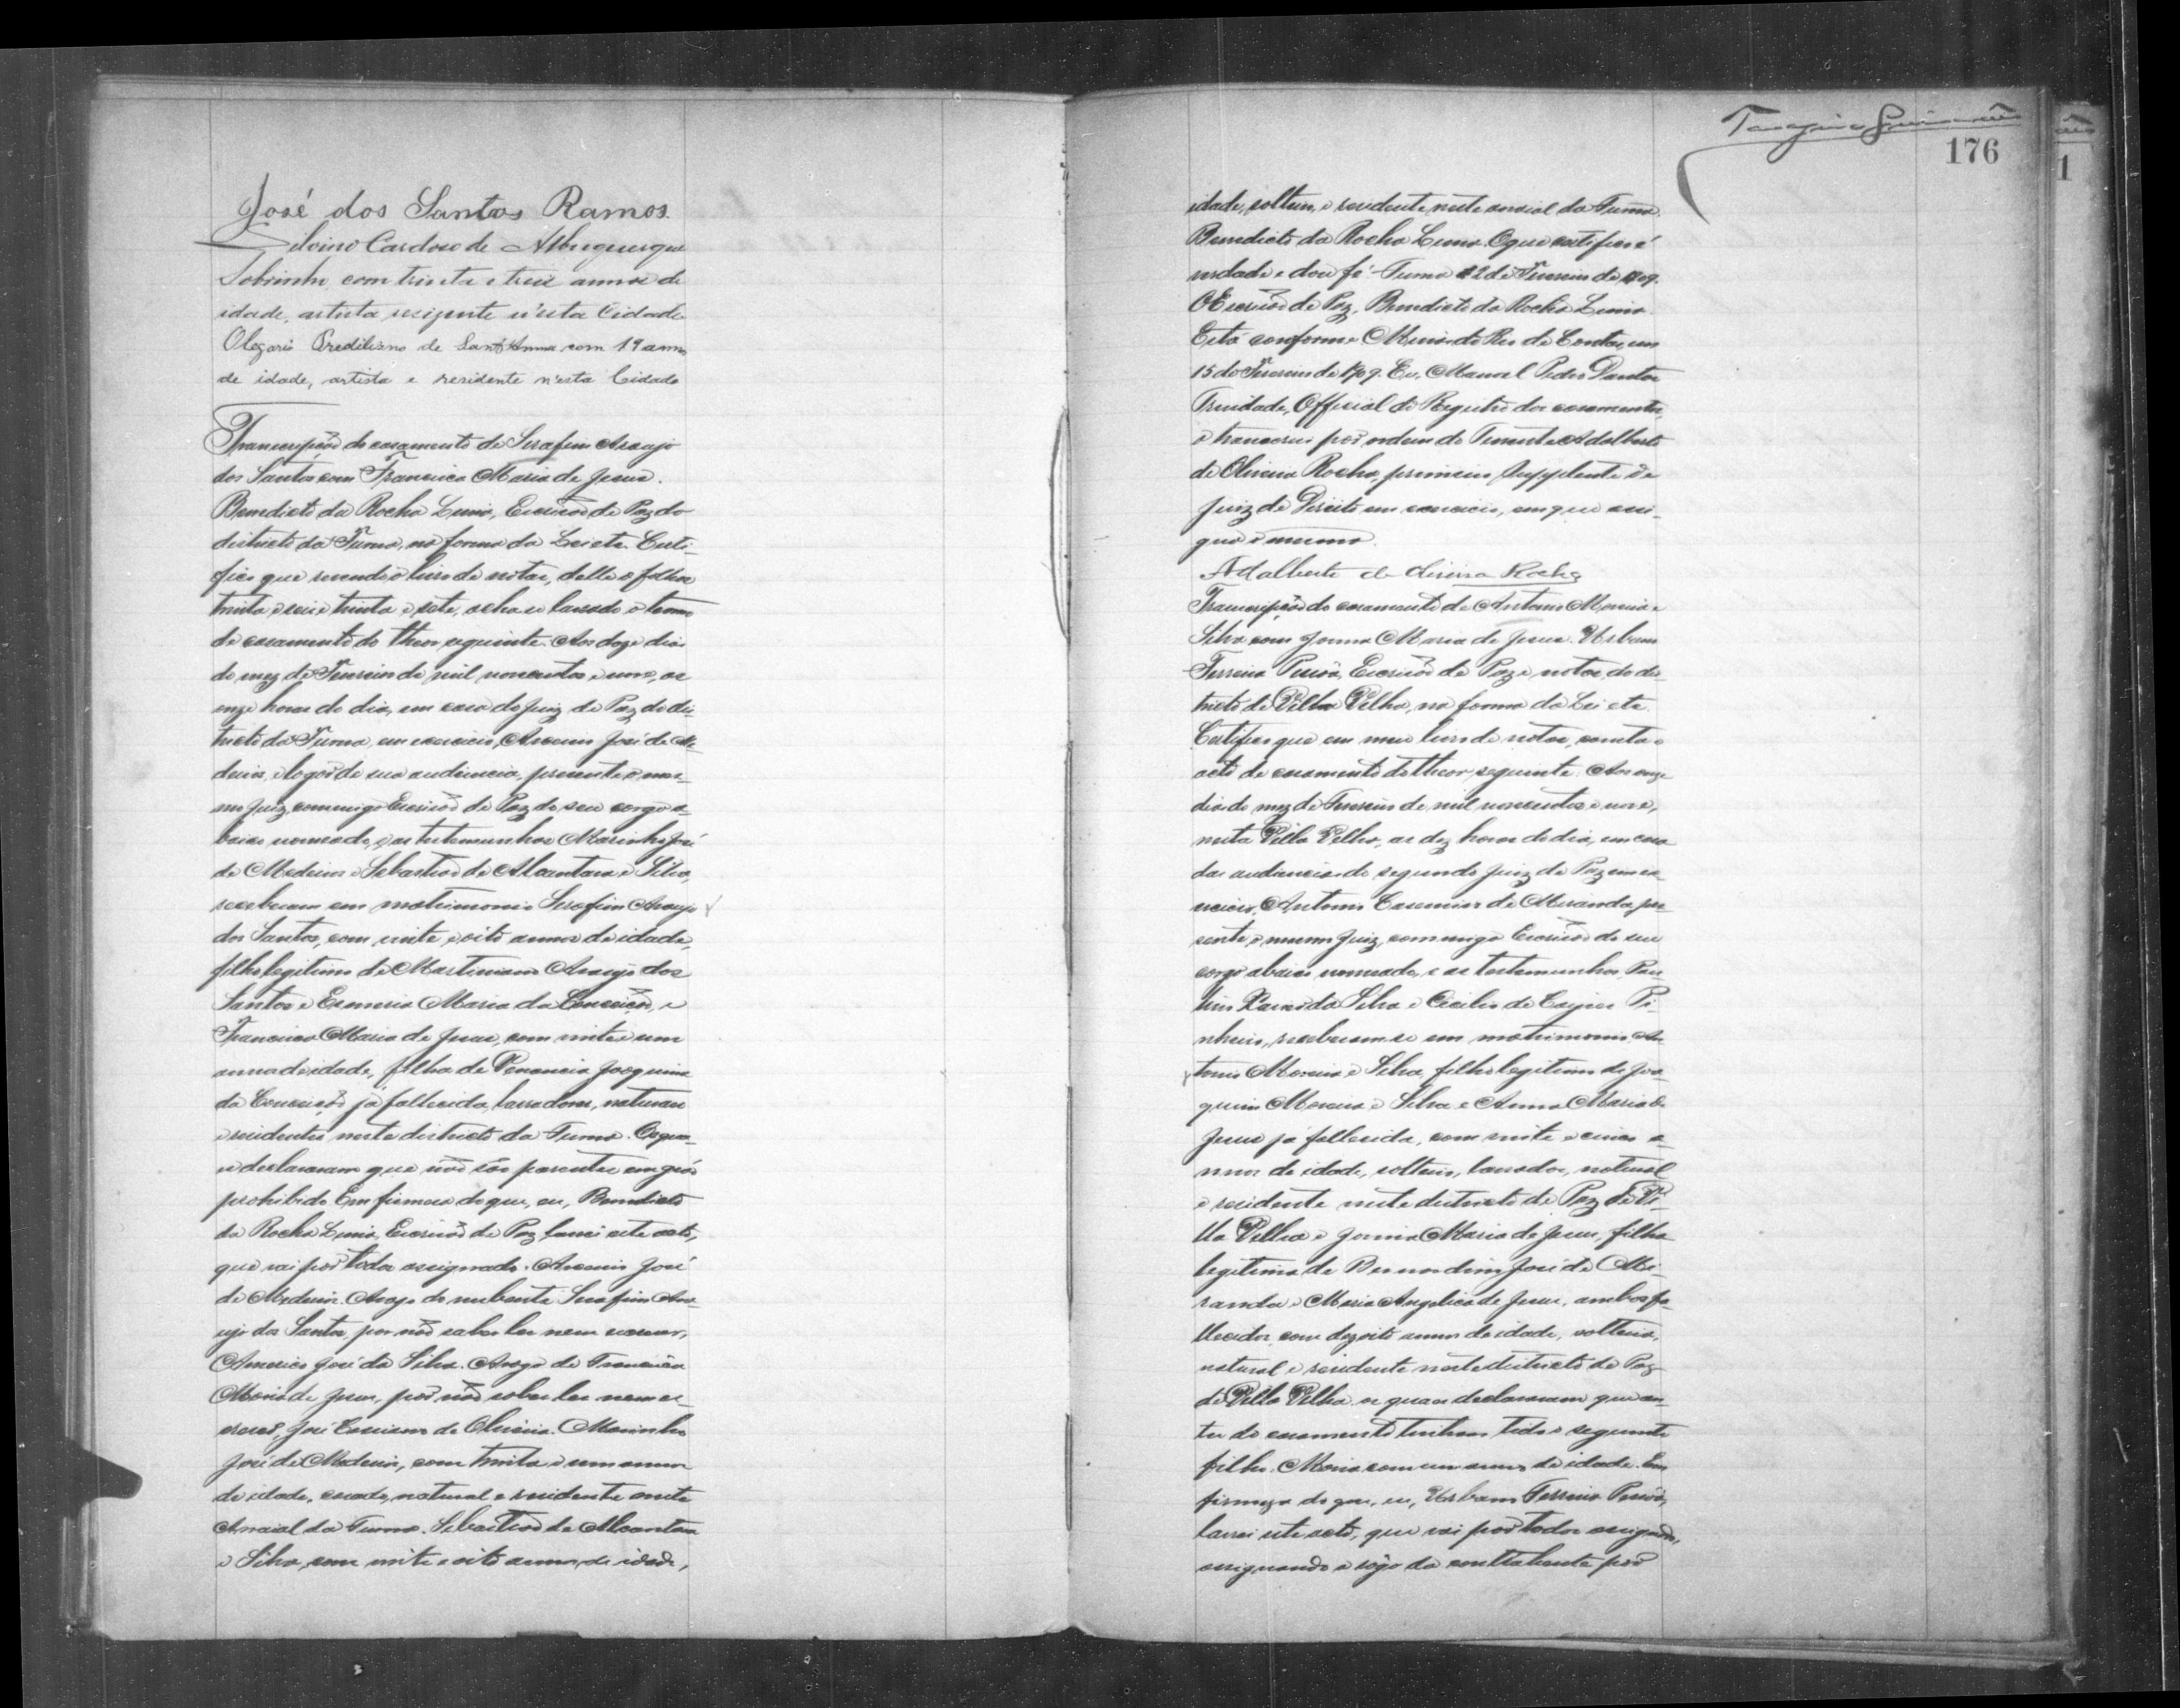 José dos Santos Ramos
Silvino Cardoso de Albuquerque
Sobrinho com trinta e treis annos de
idade, artista resizente n'esta Cidade
Olegario Predilino de Sant'Anna com 19 annos
de idade, artista e residente n'esta Cidade
Transcripção do casamento de Serafim Araujo
dos Santos com Francisca Maria de Jesus.
Benedicto da Rocha Lima, Escrivão de Paz do
districto da Furna, na forma da Lei etc. Certi-
fico que revendo o livro de notas, delle a folhas
trinta e seis e trinta e sete, acha-se lavrado o termo
de casamento do theor seguinte. Aos doze dias
do mez de Fevereiro de mil novecentos e nove, as
onze horas do dia, em casa do Juiz de Paz do dis-
tricto da Furna, em exercicio, José de Me-
deiros, e logar de sua audiencia, presente o mes-
mo Juiz, commigo Escrivão de Paz de seu cargo a-
baixo nomeado, e as testemunhas Marinho José
de Medeiros e Sebastião de Alcantara e Silva,
receberam em matrimonio Serafim Araujo
dos Santos, com vinte e oito annos de idade,
filho legitimo de Martiniano Araujo dos
Santos e Esmeria Maria da Conceição, e
Francisca Maria de Jesus, com vinte e um
annos de idade, filha de Venancia Joaquina
da Conceição já fallecida, lavradores, naturaes
e residentes neste districto da Furna. Os quaes
declararam que não são parentes em gráo
prohibido. Em firmeza do que, eu, Benedicto
da Rocha Lima, Escrivão de Paz, lavrei este acto,
que vai por todos assignado. José
de Medeiros. Arogo do nubente Serafim Ara-
ujo dos Santos, por não saber ler nem escrever,
Americo José da Silva. Arogo de Francisca
Maria de Jesus, por não saber ler nem es-
crever, José Cassiano de Oliveira. Marinho
José de Medeiros, com trinta e um annos
de idade, casado, natural e residente neste
Arraial da Furna. Sebastião de Alcantara
e Silva, com vinte e oito annos de idade,
176
idade, solteiro, e residente neste arraial da Furna.
Benedicto da Rocha Lima. O que certifico é
verdade e dou fé. Furna 12 de Fevereiro de 1909.
O Escrivão de Paz, Benedicto da Rocha Lima.
Está conforme. Minas do Rio de Contas, em
15 de Fevereiro de 1909. Eu, Manoel Pedro Dantas
Trindade, Official do Registro dos casamentos,
o transcrevi por ordem do Tenente Adalberto
de Oliveira Rocha, primeiro Supplente do
Juiz de Direito em exercicio, em que assi-
gna o mesmo.
Adalberto de Oliveira Rocha
Transcripção do casamento de Antonio Moreira e
Silva com Joanna Maria de Jesus. Urbano
Ferreira Escrivão de Paz e notas do dis-
tricto de Villa Velha, na forma da Lei etc.
Certifico que em meu livro de notas, consta o
acto de casamento do theor seguinte. Aos onze
dias do mez de Fevereiro de mil novecentos e nove,
nesta Villa Velha, as dez horas do dia, em casa
das audiencias do segundo Juiz de Paz em ex-
ercicio, Antonio Casemiro de Miranda, pre-
sente o mesmo Juiz, commigo Escrivão do seu
cargo abaixo nomeado, e as testemunhas, Pau-
lino da Silva e de Pi-
nheiro, receberam-se em matrimonio An-
tonio Moreira e Silva, filho legitimo de Joa-
quim Moreira e Silva e Anna Maria de
Jesus já fallecida, com vinte e cinco a-
nnos de idade, solteiro, lavrador, natural
e residente neste districto de Paz de Vi-
lla Velha e Joanna Maria de Jesus, filha
legitima de Bernardino José de Mi-
randa e Maria Angelica de Jesus, ambos fa-
llecidos, com dezoito annos de idade, solteira,
natural e residente neste districto de Paz
de Villa Velha, os quaes declararam que an-
tes do casamento tinham tido o seguinte
filho. Maria com um anno de idade. Em
firmeza do que, eu, Urbano Ferreira
lavrei este acto, que vai por todos assignado,
assignando a rogo da contrahente por